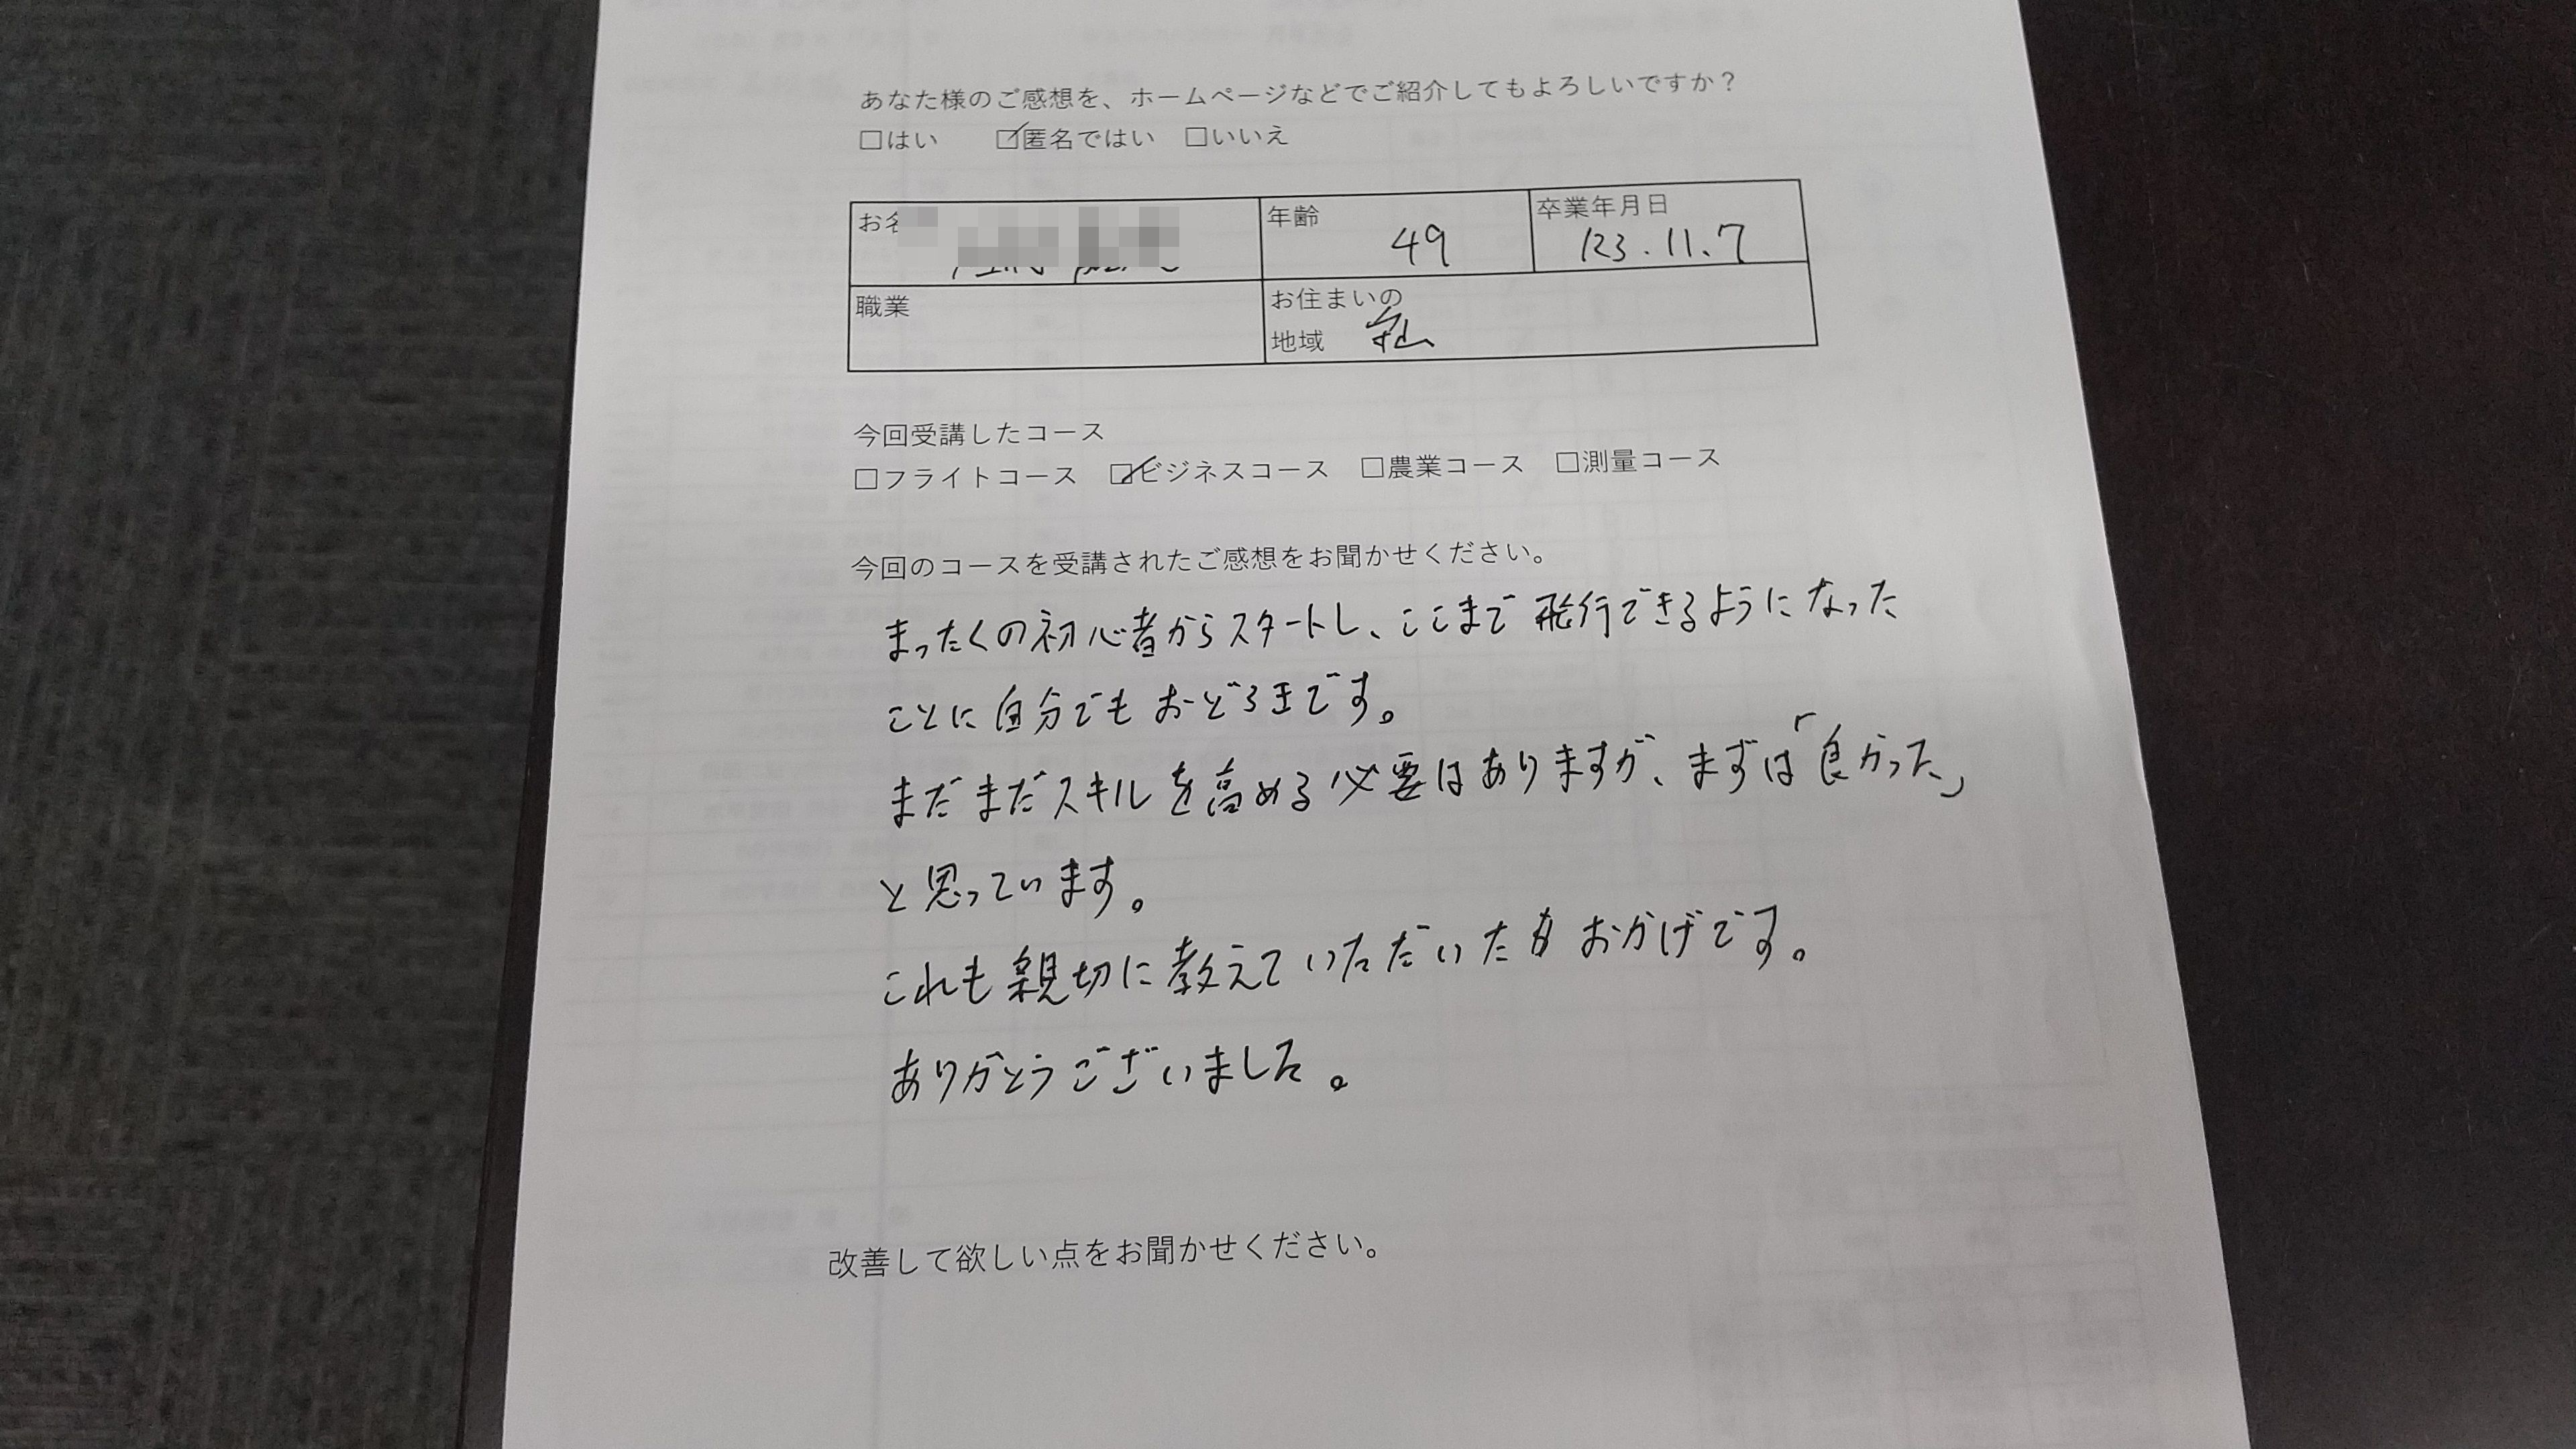 あなた様のご感想を、ホームページなどでご紹介してもよろしいですか？
□はい ☑匿名ではい □いいえ
お名
年齢 49
卒業年月日 '23.11.7
職業
お住まいの
地域
今回受講したコース
□フライトコース ☑ビジネスコース □農業コース □測量コース
今回のコースを受講されたご感想をお聞かせください。
まったくの初心者からスタートし、ここまで飛行できるようになった
ことに自分でもおどろきです。
まだまだスキルを高める必要はありますが、まずは「良かった」
と思っています。
これも親切に教えていただいた おかげです。
ありがとうございました。
改善して欲しい点をお聞かせください。